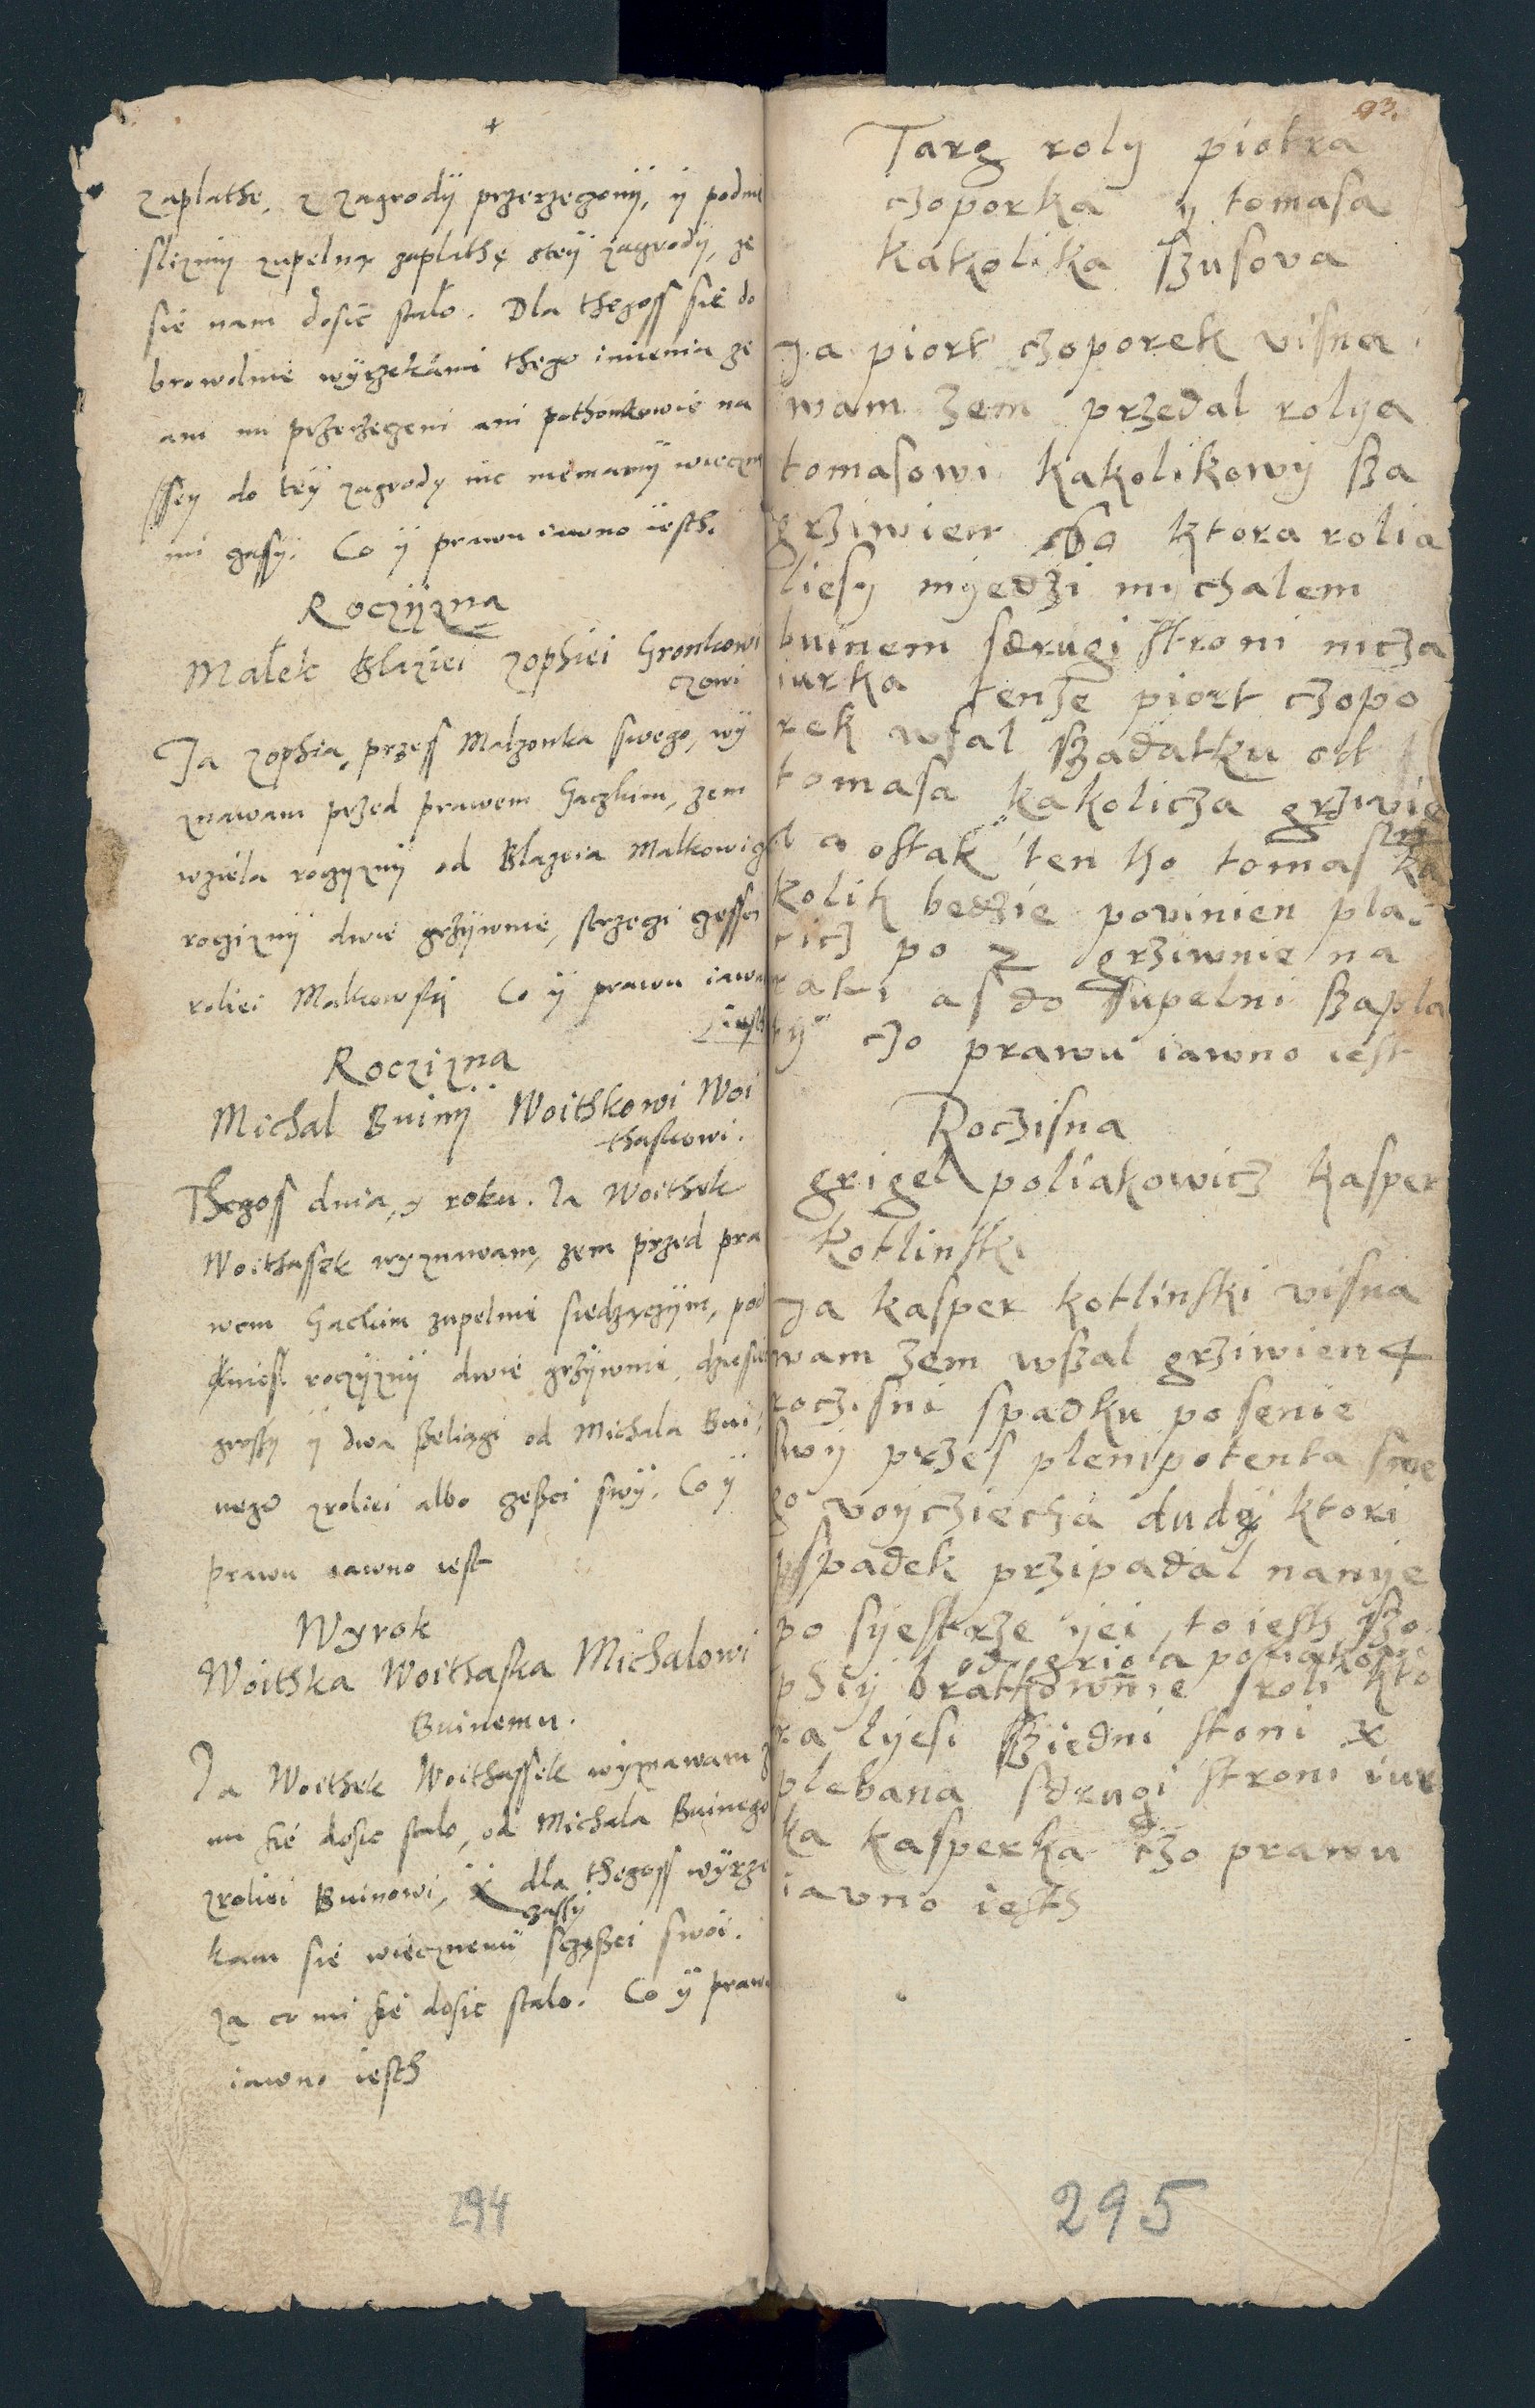 +
zaplathe, z zagrody przerzegonÿ, ÿ podnie
slizmÿ zupelną zaplathę steÿ zagrodÿ, ze
sie nam dosic stało. Dla thegoss się do
browolnie wÿrzekami thego imienia ze
ani mi przerzegeni ani pothonkowie na
ssey do teÿ zagrody nic niemamÿ wieczne
mi gassÿ. Co ÿ prawu iawno iesth.
Roczÿzna
Małek Błaziei Zophiei Gronkowi
czowi
Ja Zophia, przess Malzonka swego, wÿ
znawam przed prawem Gaczkim, zem
wziela rogyznÿ od Blazeia Malkowig
rogiznÿ dwie grzÿwnie, strzegi gessci
roliei Malkowskÿ Co ÿ prawu iawno
iesth
Roczizna
Michal Buinÿ Woithkowi Woi
thaskowi.
Thegoss dnia, y roku. Ja Woithek
Woithassek wyznawam, zem przed pra
wem Gackim zupelnie siedzączÿm, pod
niosł roczÿznÿ dwie grzÿwnie, dziesie
grossy ÿ dwa szelągi od Michala Bui
nego zroliei albo gesszci swÿ. Co ÿ
prawu iawno iest
Wyrok
Woithka Woithaska Michalowi
Buinemu.
Ja Woithek Woithassek wÿznawam z
mi się dosic stalo, od Michala Buinego
zroliei Buinowi, ÿ dla thegoss wÿrze
gassÿ
kam się wiecznemi sczęszci swoi.
za co mi się dosic stalo. Co ÿ prawu
iawno iesth
294
93.
Targ roly piotra
czoporka y tomasa
kakolika szusova
Ja piort czoporek visna
wam zem przedal rolya
tomasowi kakolikowÿ sza
grziwien 50 ktora rolia
liesy myedzi mychalem
buinem sdrugi stroni nicza
iurka tenze piort czopo
rek wsal szadatku od
tomasa kakolicza grziwie
a ostak ten tho tomas ka
kolik bedzie povinien pla
cicz po 2 grziwnie na
rati as do supelni szapla
tÿ czo prawu iawno iest
Roczisna
grigel poliakowicz kasper
kotlinski
Ja kasper kotlinski visna
wam zem wszal grziwien 4
roczisni spadku po senie
swÿ przes plenipotenta swe
go voycziecha dudÿ ktori
spadek przipadal namye
po syestrze ÿei to iesth szo
od griola poliakowi
phiÿ bratkownie sroli kto
ra lÿesi sziedni stoni x
plebana sdrugi stroni iur
ka kasperka czo prawu
iavno iesth
295